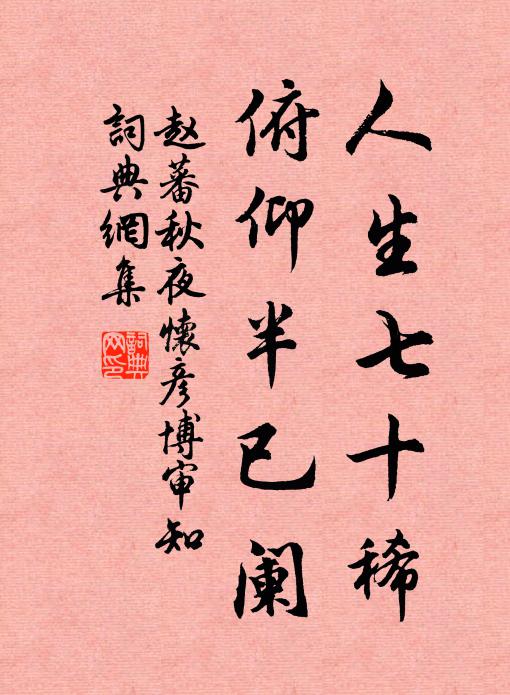 人生七十稀
俯仰半已阑
赵蕃秋夜怀彦博审知
詞典網集
詞典网印